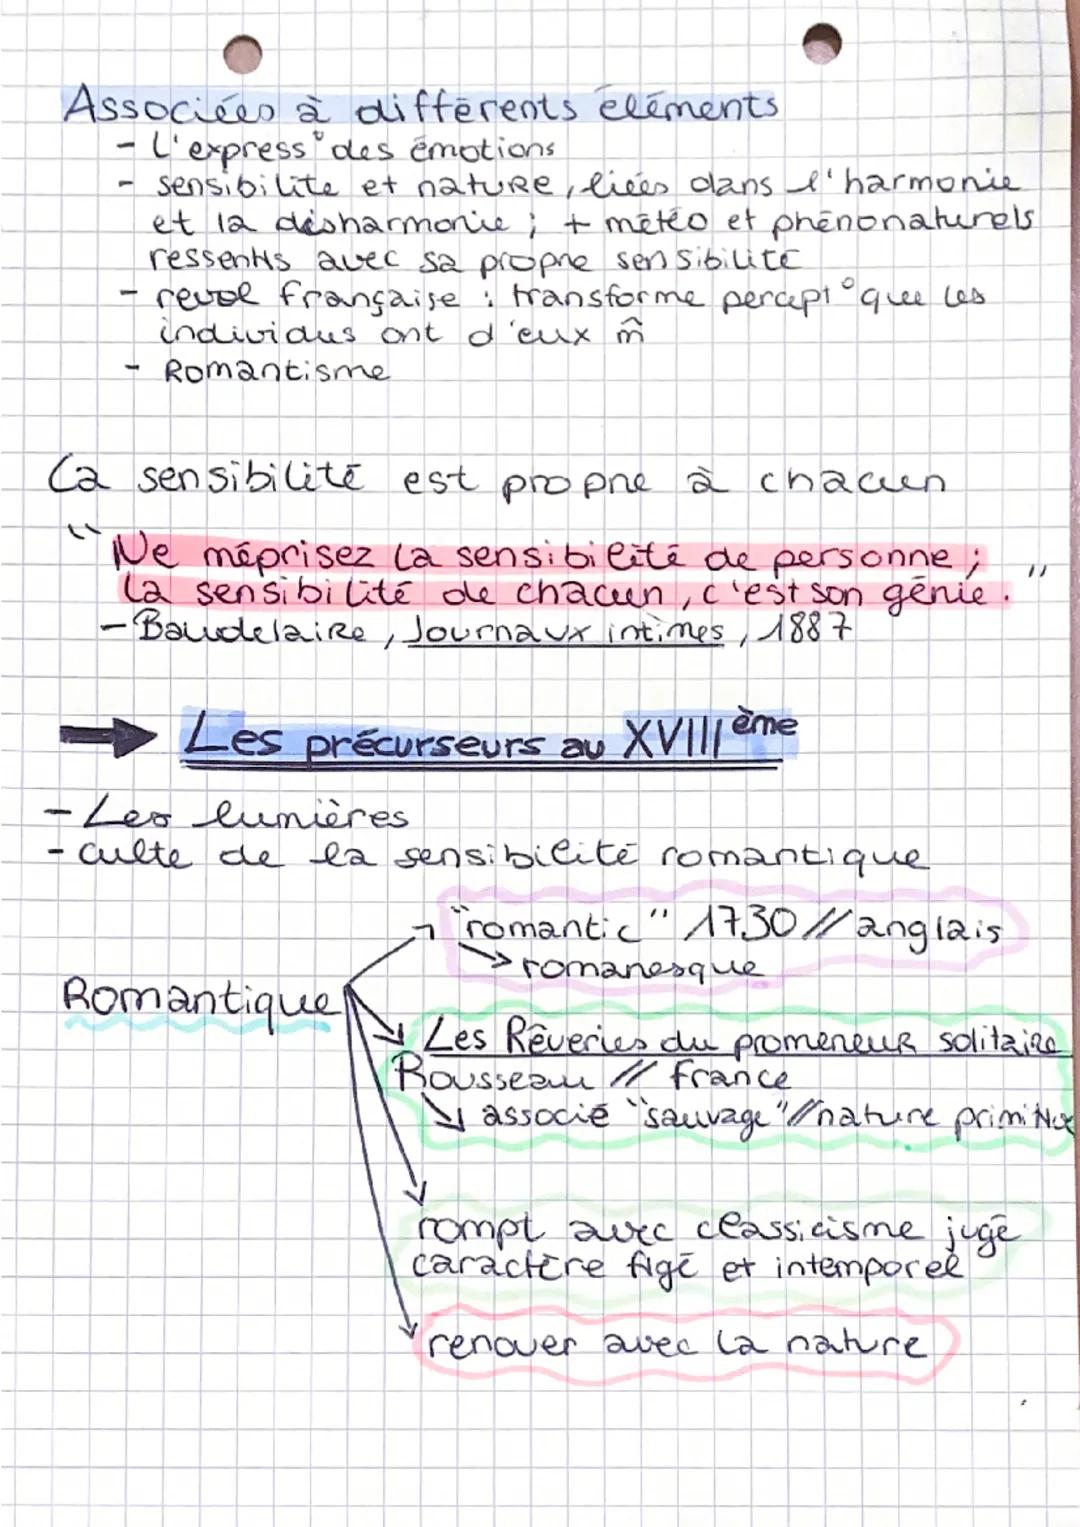 Associées à différents éléments
- L'express° des émotions
- sensibilité et nature, liées dans l'harmonie
et la désharmonie ; + météo et phénonaturels
ressentis avec sa propre sensibilité
- revol française : transforme percept° que les
individus ont d'eux m̂
- Romantisme
La sensibilité est propre à chacun
"Ne méprisez la sensibilité de personne ;
la sensibilité de chacun, c'est son génie."
- Baudelaire, Journaux intimes, 1887
→ Les précurseurs au XVIIIème
- Les lumières
- culte de la sensibilité romantique
→ "romantic" 1730 // anglais
→ romanesque
Romantique
→ Les Rêveries du promeneur solitaire
Rousseau // France
↘ associé "sauvage" // nature primitive
rompt avec classicisme jugé
caractère figé et intemporel
renouer avec la nature